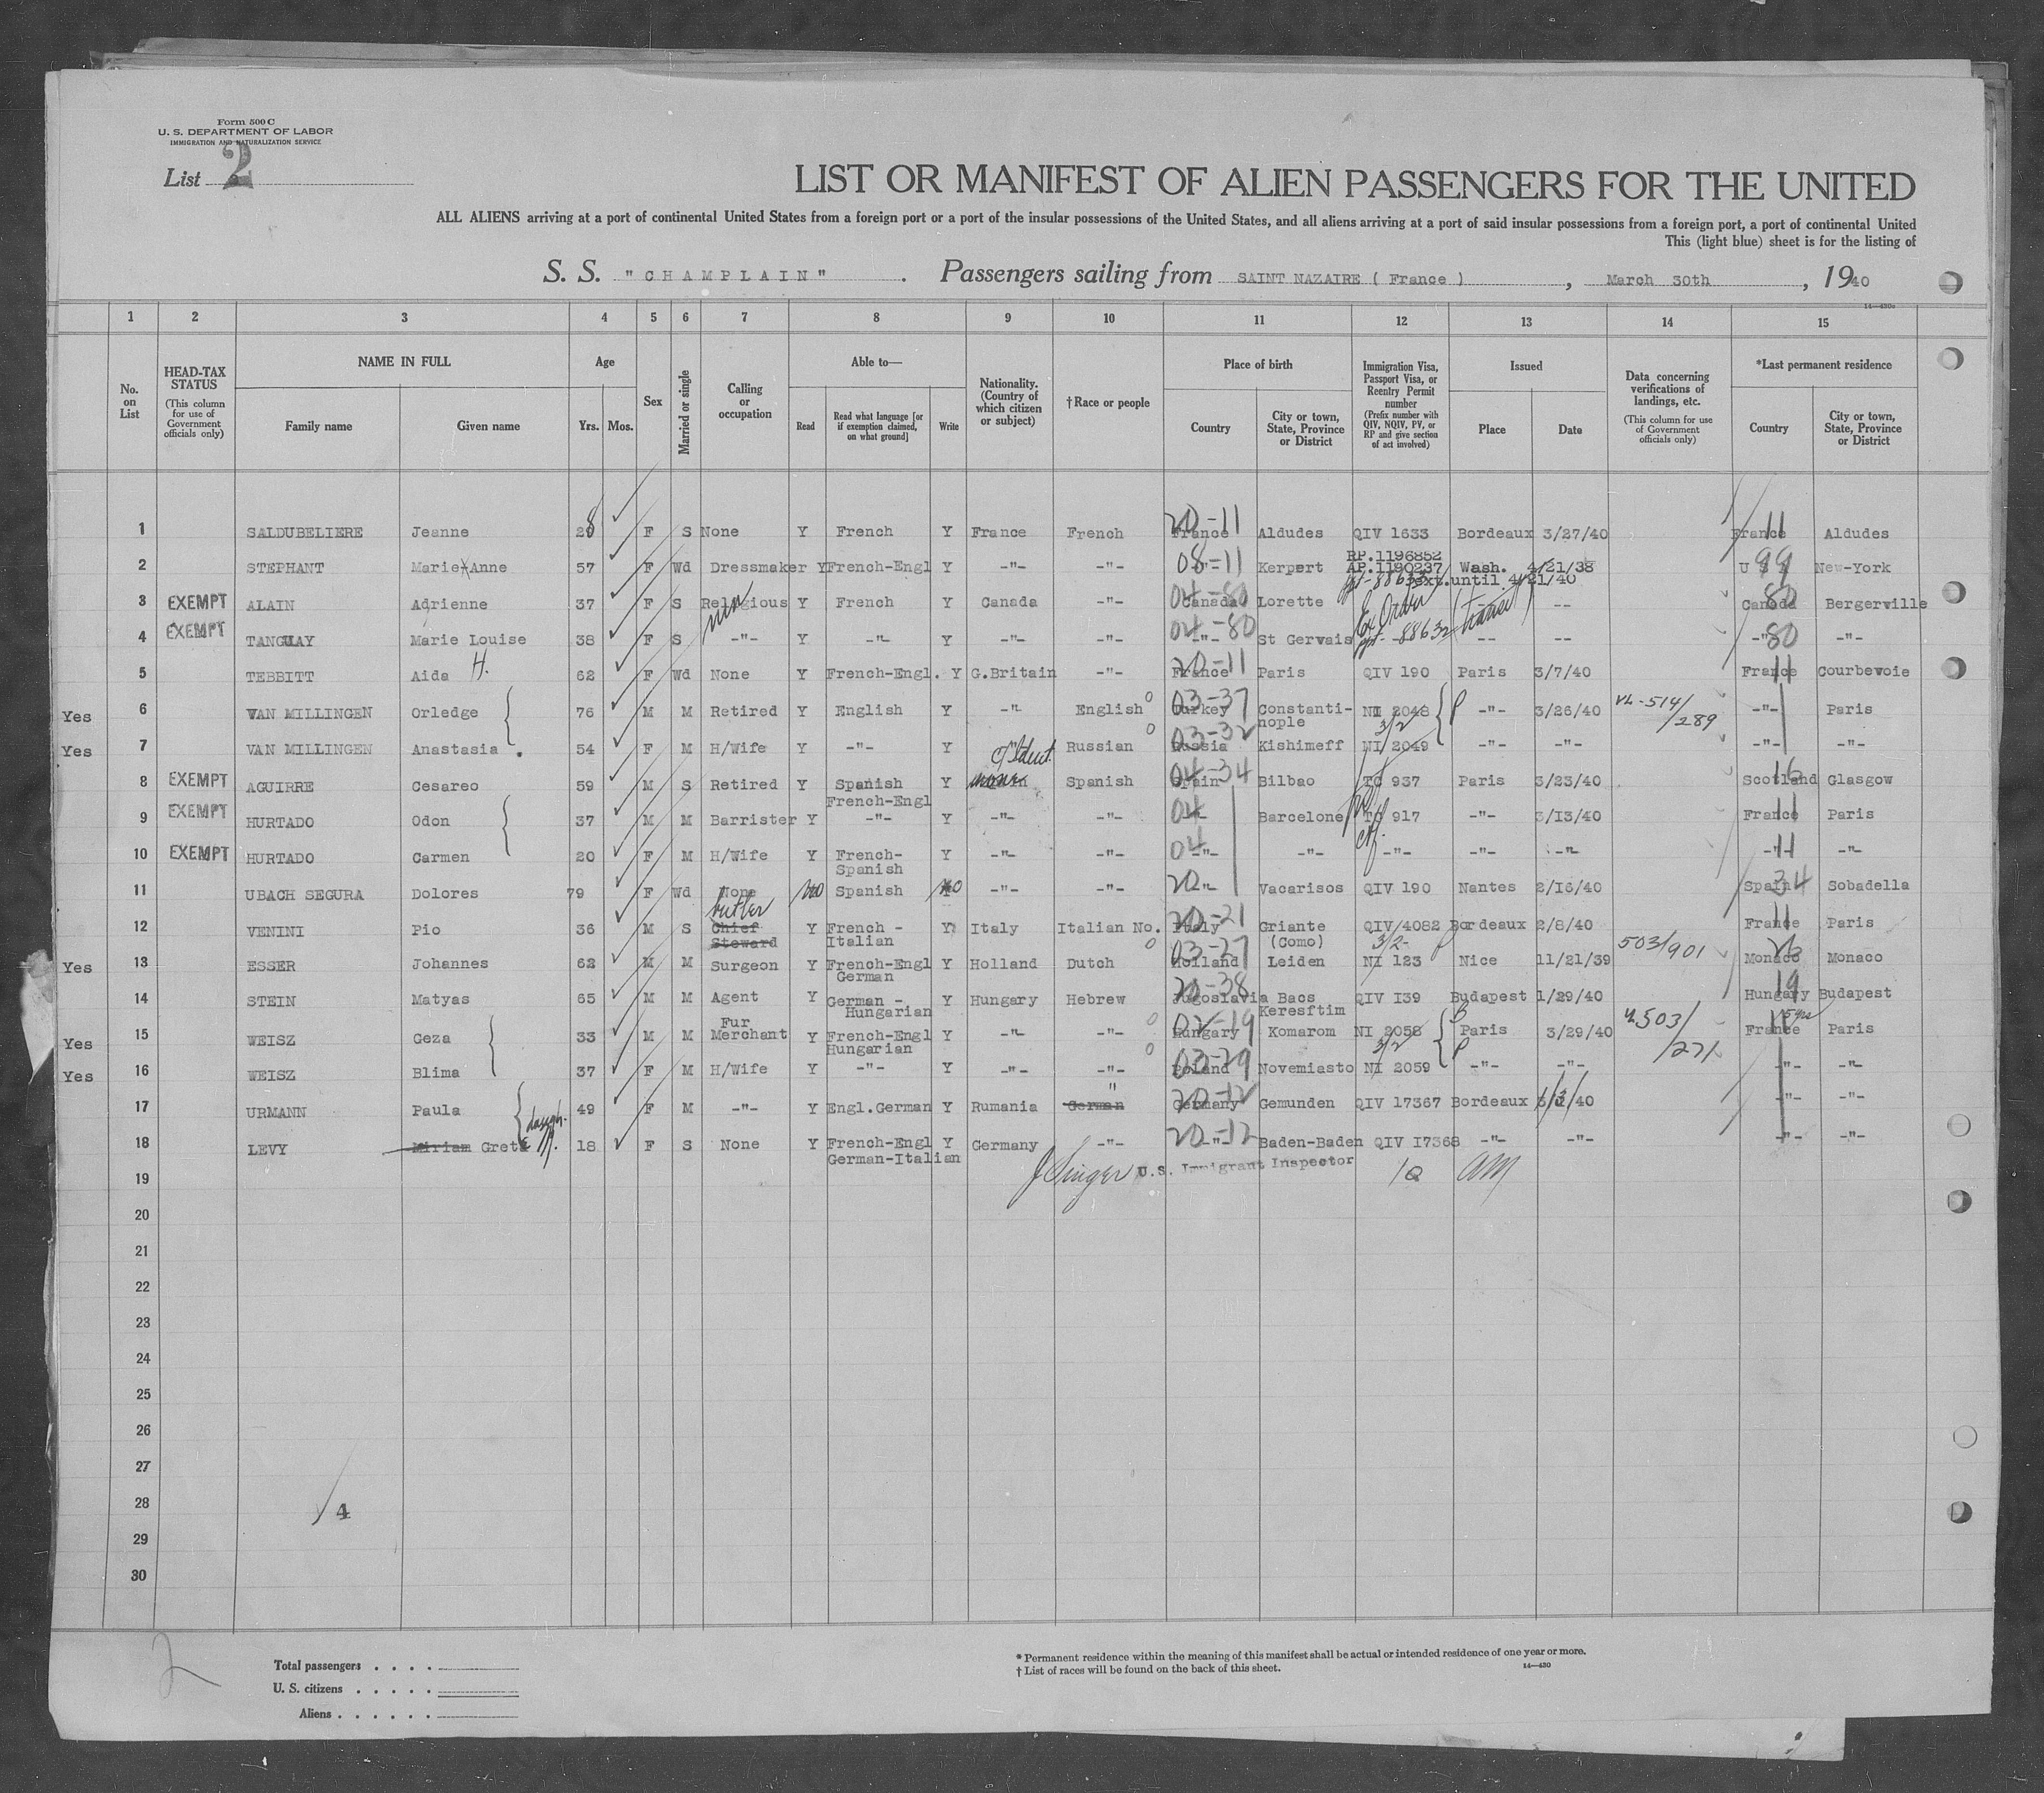 Form 500 C
U. S. DEPARTMENT OF LABOR
IMMIGRATION AND NATURALIZATION SERVICE
List 2
LIST OR MANIFEST OF ALIEN PASSENGERS FOR THE UNITED
ALL ALIENS arriving at a port of continental United States from a foreign port or a port of the insular possessions of the United States, and all aliens arriving at a port of said insular possessions from a foreign port, a port of continental United
This (light blue) sheet is for the listing of
S. S. "CHAMPLAIN" . Passengers sailing from SAINT NAZAIRE ( France ) , March 30th , 1940
14—430c
1 2 3 4 5 6 7 8 9 10 11 12 13 14 15
No. on List
HEAD-TAX STATUS (This column for use of Government officials only)
NAME IN FULL
Family name Given name
Age
Yrs. Mos.
Sex
Married or single
Calling or occupation
Able to—
Read Read what language [or if exemption claimed, on what ground] Write
Nationality. (Country of which citizen or subject)
†Race or people
Place of birth
Country City or town, State, Province or District
Immigration Visa, Passport Visa, or Reentry Permit number (Prefix number with QIV, NQIV, PV, or RP and give section of act involved)
Issued
Place Date
Data concerning verifications of landings, etc. (This column for use of Government officials only)
*Last permanent residence
Country City or town, State, Province or District
1 SALDUBELIERE Jeanne 28 F S None Y French Y France French 20-11 France Aldudes QIV 1633 Bordeaux 3/27/40 France 11 Aldudes
RP.1196852
2 STEPHANT Marie Anne 57 F Wd Dressmaker Y French-Engl Y -"- -"- 08-11 -"- Kerpert AP.1190237 Wash. 4/21/38 U S A 99 New-York
ext.until 4/21/40
3 EXEMPT ALAIN Adrienne 37 F S Religious nun Y French Y Canada -"- 04-80 Canada Lorette ppt-88633 Ex Order transit -- -- Canada 80 Bergerville
4 EXEMPT TANGUAY Marie Louise 38 F S -"- Y -"- Y -"- -"- 04-80 -"- St Gervais ppt-88632 -- -- -"- 80 -"-
5 TEBBITT Aida H. 62 F Wd None Y French-Engl. Y G.Britain -"- 20-11 France Paris QIV 190 Paris 3/7/40 France 11 Courbevoie
Yes 6 VAN MILLINGEN Orledge 76 M M Retired Y English Y -"- English 03-37 Turkey Constanti-nople NI 2048 3/2 P -"- 3/26/40 VL-514/289 -"- Paris
Yes 7 VAN MILLINGEN Anastasia 54 F M H/Wife Y -"- Y Russian 03-32 Russia Kishimeff NI 2049 -"- -"- -"- -"-
8 EXEMPT AGUIRRE Cesareo 59 M S Retired Y Spanish Y Spanish 04-34 Spain Bilbao TC 937 Paris 3/23/40 Scotland 16 Glasgow
French-Engl
9 EXEMPT HURTADO Odon 37 M M Barrister Y -"- Y -"- -"- 04 Barcelone TC 917 -"- 3/13/40 France 11 Paris
10 EXEMPT HURTADO Carmen 20 F M H/Wife Y French- Y -"- -"- 04 -"- -"- -"- -"- -"- -"- 11 -"-
Spanish
11 UBACH SEGURA Dolores 79 F Wd None No Spanish No -"- -"- 20 -"- Vacarisos QIV 190 Nantes 2/16/40 Spain 34 Sobadella
butler
12 VENINI Pio 36 M S Chief Steward Y French - Italian Y Italy Italian No. 20-21 Italy Griante (Como) QIV/4082 Bordeaux 2/8/40 France 11 Paris
Yes 13 ESSER Johannes 62 M M Surgeon Y French-Engl German Y Holland Dutch 03-27 Holland Leiden 3/2 P NI 123 Nice 11/21/39 503/901 Monaco 26 Monaco
14 STEIN Matyas 65 M M Agent Y German - Hungarian Y Hungary Hebrew 20-38 Jugoslavia Bacs Keresftim QIV I39 Budapest 1/29/40 Hungary 19 Budapest
Yes 15 WEISZ Geza 33 M M Fur Merchant Y French-Engl Hungarian Y -"- -"- 02-19 Hungary Komarom NI 2058 3/2 P Paris 3/29/40 503/271 France 11 5yrs Paris
Yes 16 WEISZ Blima 37 F M H/Wife Y -"- Y -"- -"- 03-29 Poland Novemiasto NI 2059 P -"- -"- -"- -"-
17 URMANN Paula 49 F M -"- Y Engl.German Y Rumania German " 20-12 Germany Gemunden QIV 17367 Bordeaux 3/3/40 -"- -"-
daugh.
18 LEVY Miriam Greta 18 F S None Y French-Engl German-Italian Y Germany -"- 20-12 -"- Baden-Baden QIV I7368 -"- -"- -"- -"-
19 J Singer U.S. Immigrant Inspector
20
21
22
23
24
25
26
27
28 4
29
30
2
Total passengers
U. S. citizens
Aliens
* Permanent residence within the meaning of this manifest shall be actual or intended residence of one year or more.
† List of races will be found on the back of this sheet.
14—430